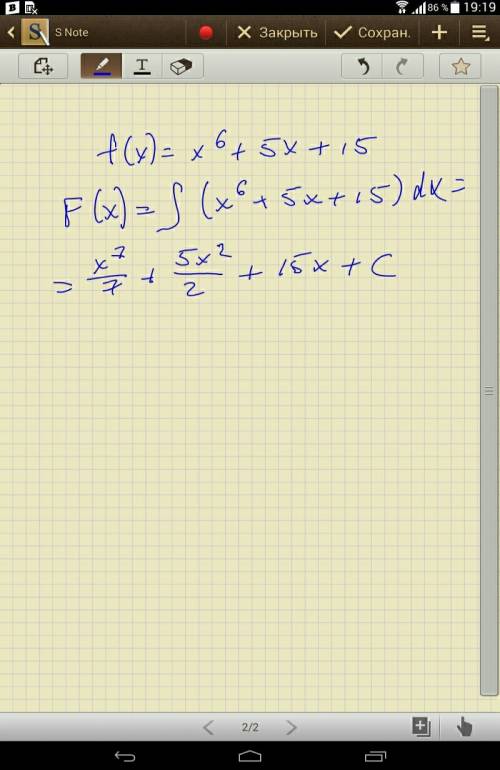 86 % 19:19
S Note Закрыть Сохран.
T
f(x) = x⁶ + 5x + 15
F(x) = ∫ (x⁶ + 5x + 15) dx =
= x⁷/7 + 5x²/2 + 15x + C
2/2